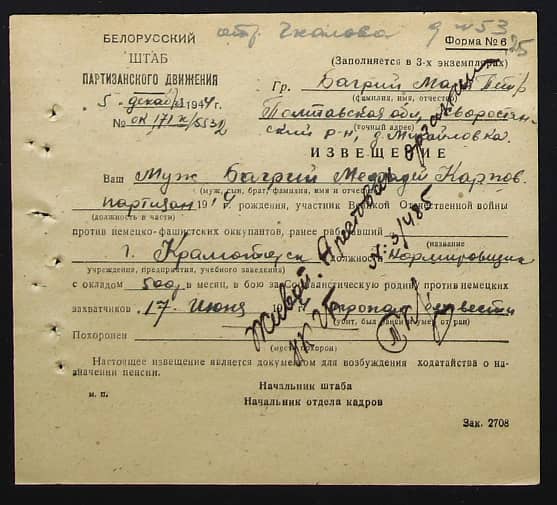 отр. Чкалова д № 53
25
БЕЛОРУССКИЙ
ШТАБ
ПАРТИЗАНСКОГО ДВИЖЕНИЯ
5 декабря 1944 г.
№
Форма № 6
(Заполняется в 3-х экземплярах)
Гр. Багрий Петр
(фамилия, имя, отчество)
Полтавская обл.
(точный адрес)
ский р-н, д. Михайловка.
ИЗВЕЩЕНИЕ
Ваш Муж Багрий Карпов.
(муж, сын, брат, фамилия, имя и отчество)
партизан 1914 рождения, участник Великой Отечественной войны
(должность в части)
против немецко-фашистских оккупантов, ранее работавший
(название
г. Краматорск должность Нормировщика
учреждения, предприятия, учебного заведения)
с окладом 500 в месяц, в бою за Социалистическую родину против немецких
захватчиков 17 Июня пропал безвести
(убит, был ранен и умер от ран)
Похоронен
(место похорон)
Настоящее извещение является документом для возбуждения ходатайства о на-
значении пенсии.
Начальник штаба
м. п.
Начальник отдела кадров
Зак. 2708
Живой. Арестован органами
НКГБ № 3/485